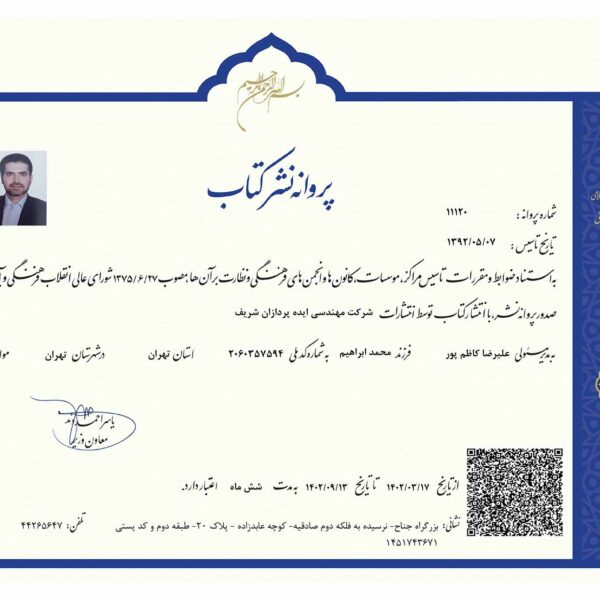 بسم الله الرحمن الرحیم
پروانه نشر کتاب
شماره پروانه : ۱۱۱۲۰
تاریخ تاسیس : ۱۳۹۲/۰۵/۰۷
به استناد ضوابط و مقررات تاسیس مراکز، موسسات، کانون ها و انجمن های فرهنگی و نظارت بر آن ها، مصوب ۱۳۷۵/۶/۲۷ شورای عالی انقلاب فرهنگی و
صدور پروانه نشر، با انتشار کتاب توسط انتشارات شرکت مهندسی ایده پردازان شریف
به مدیر مسئولی علیرضا کاظم پور فرزند محمد ابراهیم به شماره کد ملی ۲۰۶۰۳۵۷۵۹۴ استان تهران در شهرستان تهران موا
یاسر احمدوند
معاون وزیر
از تاریخ ۱۴۰۲/۰۳/۱۷ تا تاریخ ۱۴۰۲/۰۹/۱۳ به مدت شش ماه اعتبار دارد.
نشانی: بزرگراه جناح- نرسیده به فلکه دوم صادقیه- کوچه عابدزاده - پلاک ۲۰- طبقه دوم و کد پستی تلفن: ۴۴۲۶۵۶۴۷
۱۴۵۱۷۴۳۶۷۱